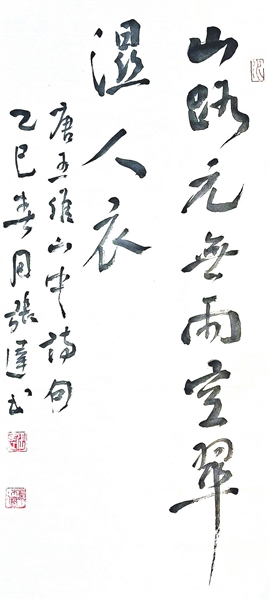 山路元無雨空翠
濕人衣
唐王維山中詩句
乙巳春月張達書